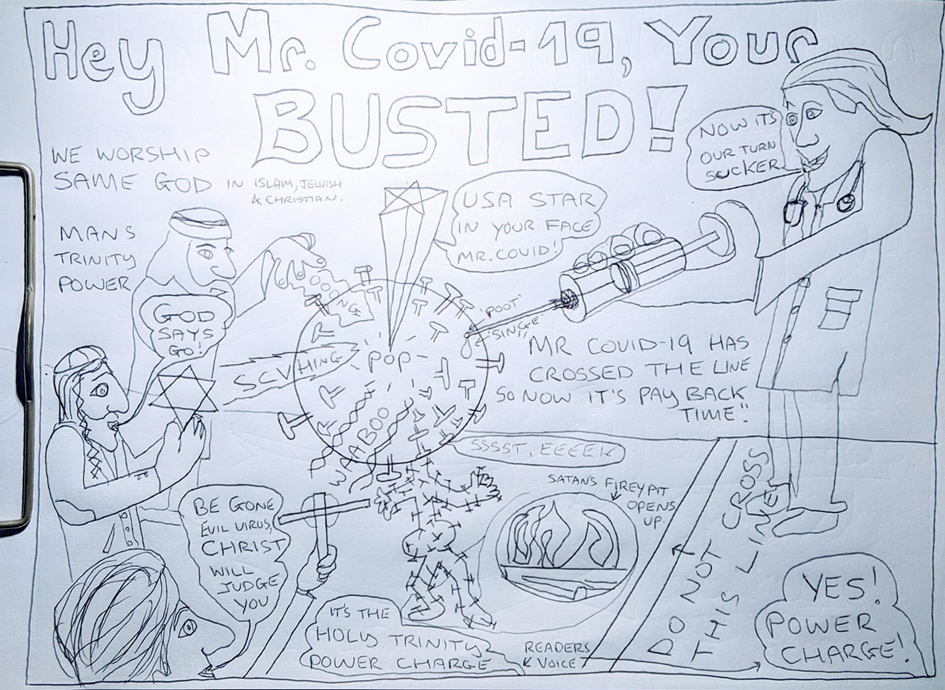 Hey Mr. Covid-19, Your
BUSTED!
WE WORSHIP
SAME GOD IN ISLAM, JEWISH
& CHRISTIAN.
MANS
TRINITY
POWER
GOD
SAYS
GO!
USA STAR
IN YOUR FACE
MR. COVID!
NOW IT'S
OUR TURN
SUCKER.
'POOT'
'SINGE'
POP-
MR COVID-19 HAS
CROSSED THE LINE
SO NOW IT'S PAY BACK
TIME"
SSSST, EEEEK
SATAN'S FIREY PIT
OPENS
UP.
BE GONE
EVIL VIRUS,
CHRIST
WILL
JUDGE
YOU
DO NOT CROSS
THIS LINE!
IT'S THE
HOLY TRINITY
POWER CHARGE
READERS
VOICE
YES!
POWER
CHARGE!